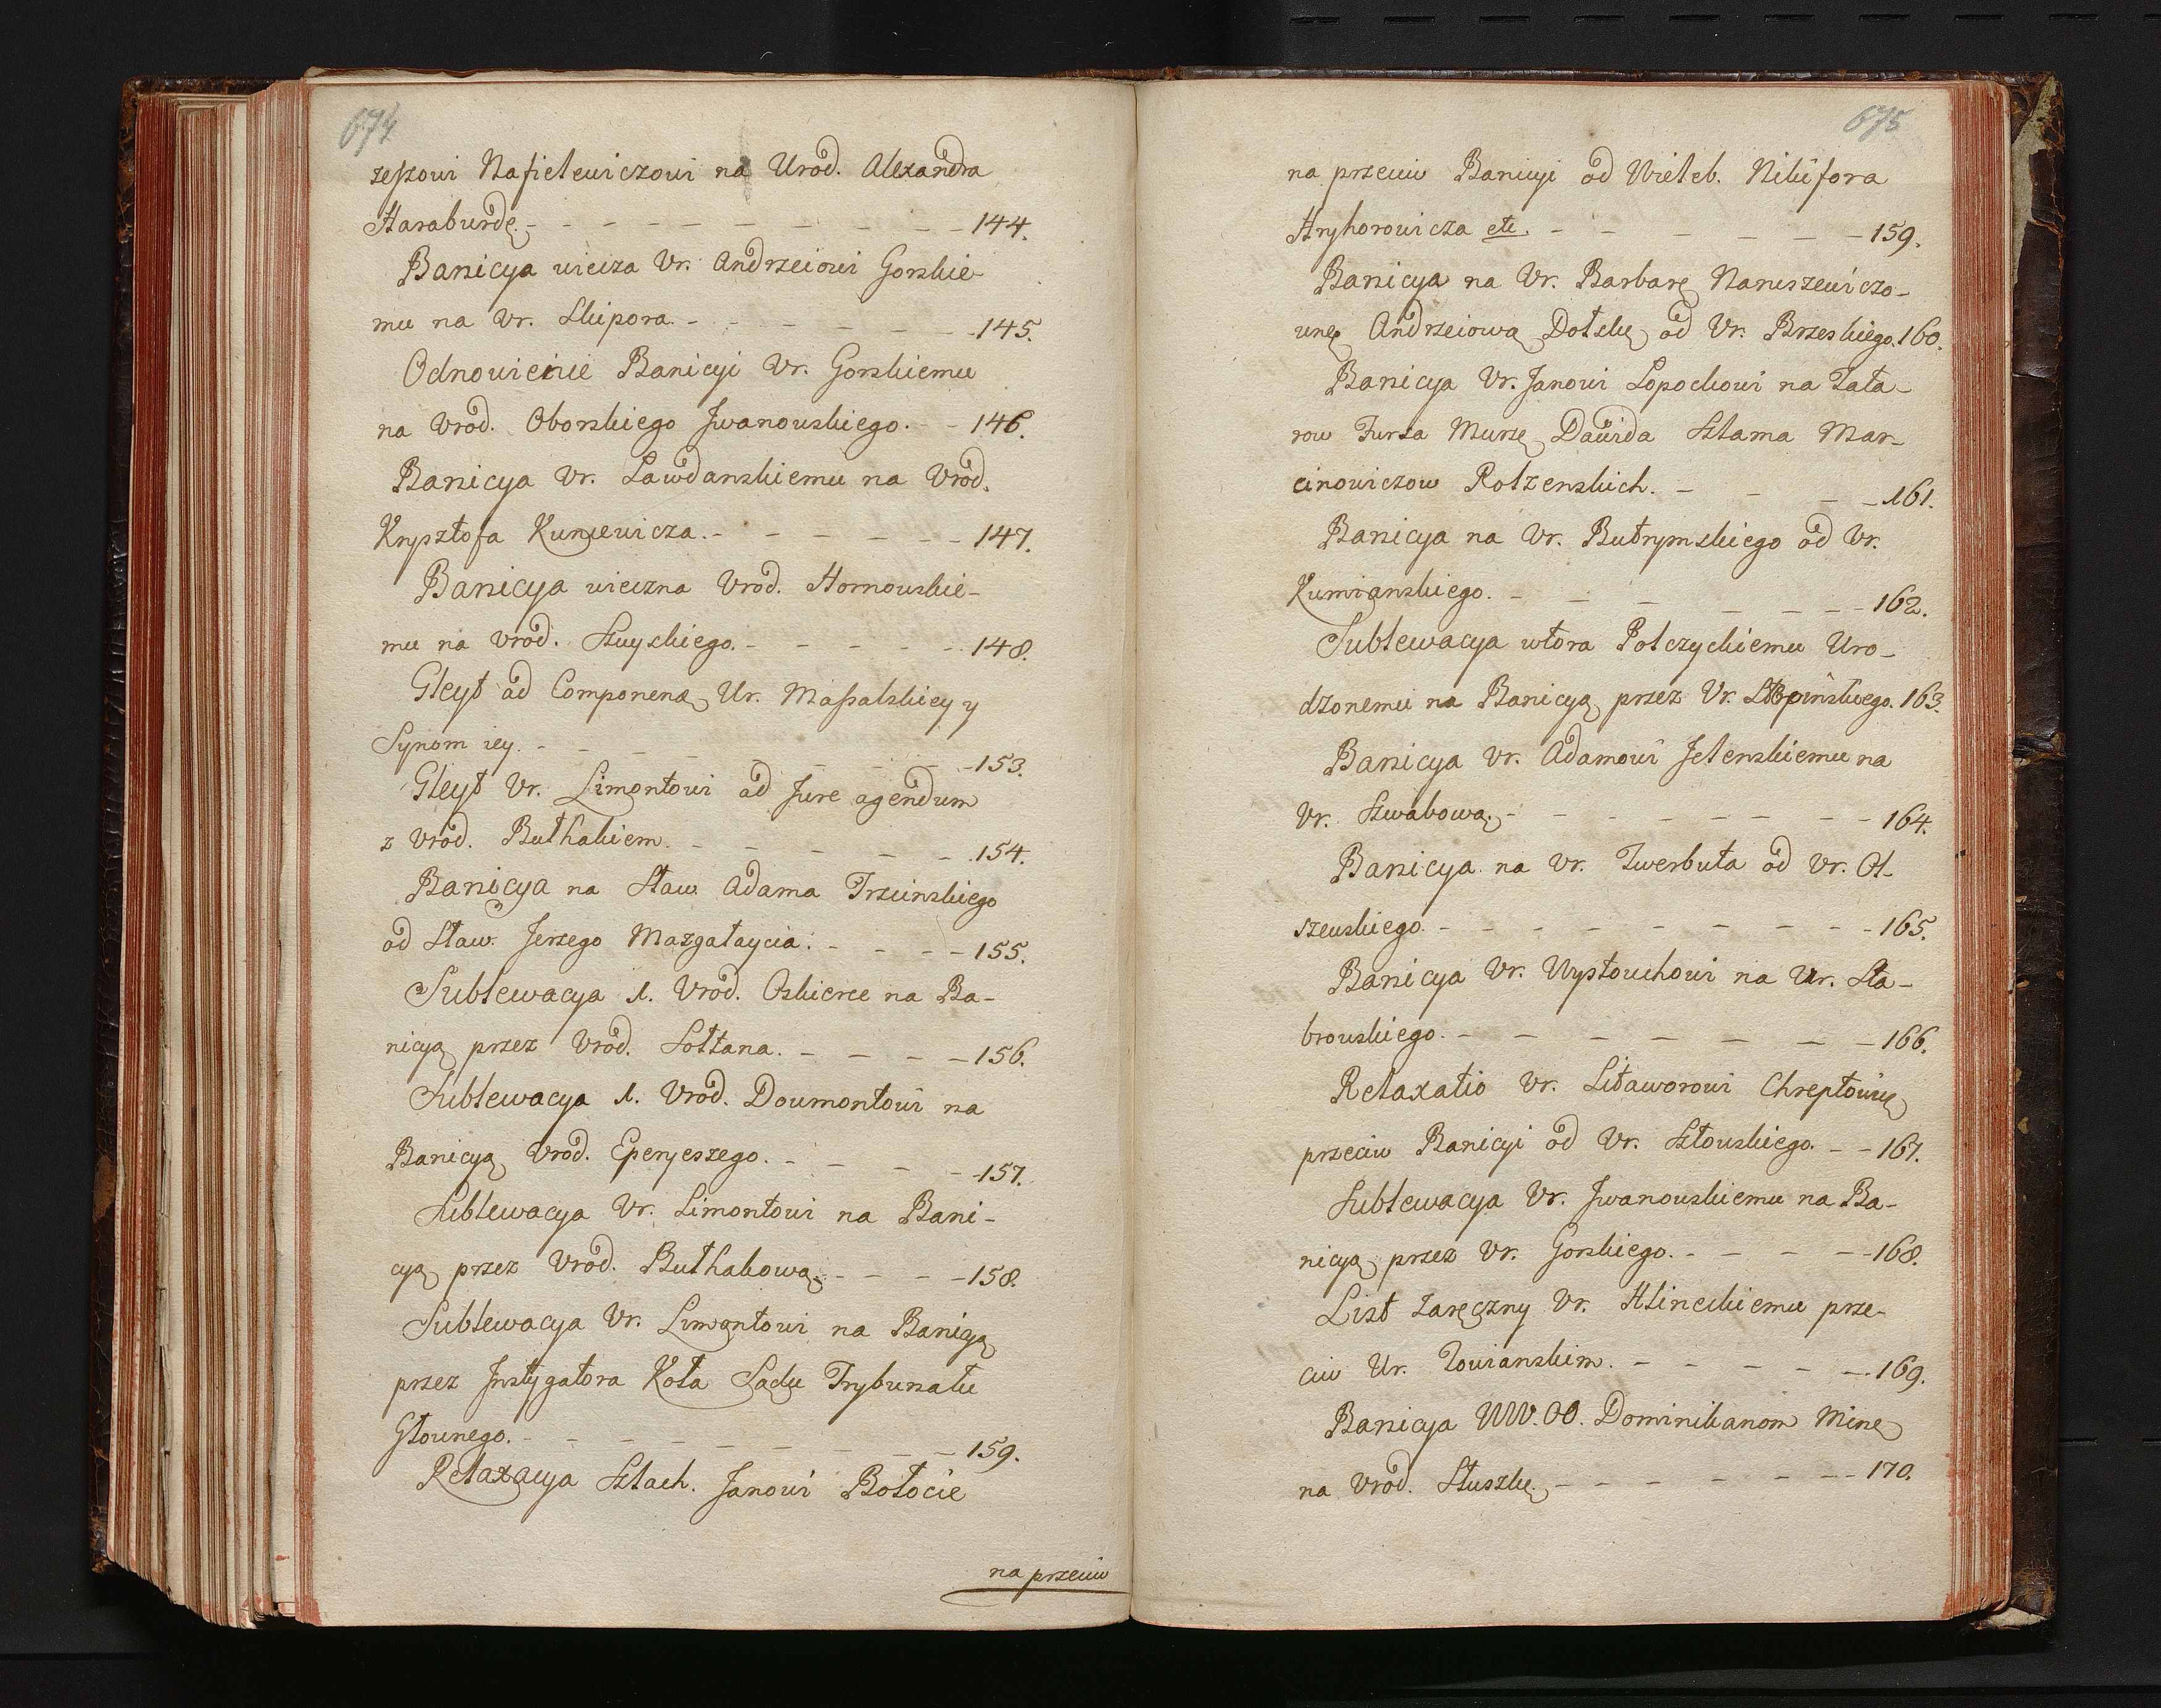 674
zeszowi Nasielewiczowi na Urod. Alexandra
Haraburdę. - - - - - - - - - 144.
Banicya wieiza Vr. Andrzeiowi Gorskie-
mu na Vr. Skipora. - - - - - - 145.
Odnowienie Banicyi Vr. Gorskiemu
na Vrod. Oborskiego Jwanowskiego. - - 146.
Banicya Vr. Lawdanskiemu na Vrod.
Krysztofa Kuncewicza. - - - - - - 147.
Banicya wieczna Vrod. Hornowskie-
mu na Vrod. Szuyskiego. - - - - - 148.
Gleyt ad Componenda Ur. Massalskiey y
Synom iey. - - - - - - - 153.
Gleyt Vr. Limontowi ad Jure agendum
z Vrod. Buthakiem. - - - - - - 154.
Banicya na Sław. Adama Trzcinskiego
od Sław. Jerzego Mazgałaycia. - - - - 155.
Sublewacya 1. Vrod. Oskierce na Ba-
nicyą przez Vrod. Sołtana. - - - - 156.
Sublewacya 1. Vrod. Doumontowi na
Banicyą Vrod. Eperyeszego. - - - - - 157.
Sublewacya Vr. Limontowi na Bani-
cyą przez Vrod. Buthakową. - - - - 158.
Sublewacya Vr. Limontowi na Banicyą
przez Jnstygatora Koła Sądu Trybunału
Głownego. - - - - - - - - - 159.
Relaxacya Szlach. Janowi Bołocie
na przeciw
675
na przeciw Banicyi od Witeb. Nikifora
Hryhorowicza etc. - - - - - - 159.
Banicya na Vr. Barbarę Naruszewiczo-
wnę Andrzeiową Dolskę od Vr. Brzeskiego. 160.
Banicya Vr. Janowi Łopockowi na Tata-
row Furza Murzę Dawida Szlama Mar-
cinowiczow Rolzenskich. - - - - 161.
Banicya na Vr. Butrymskiego od Vr.
Kumianskiego. - - - - - - - 162.
Sublewacya wtora Polczyckiemu Uro-
dzonemu na Banicyą przez Vr. 163.
Banicya Vr. Adamowi Jelenskiemu na
Vr. Szwabową. - - - - - - - - 164.
Banicya na Vr. Zwerbuta od Vr. Ol-
szewskiego. - - - - - - - - - 165.
Banicya Vr. Wysłouchowi na Ur. Sła-
browskiego. - - - - - - - 166.
Relaxatio Vr. Litaworowi Chreptowię
przeciw Banicyi od Vr. Szłowskiego. - - 167.
Sublewacya Vr. Jwanowskiemu na Ba-
nicyą przez Vr. Gorskiego. - - - - - 168.
List zaręczny Vr. Hlineckiemu prze-
ciw Ur. Towianskim. - - - - - 169.
Banicya WW. OO. Dominikanom Minę
na Vrod. Słuszkę. - - - - - - - 170.